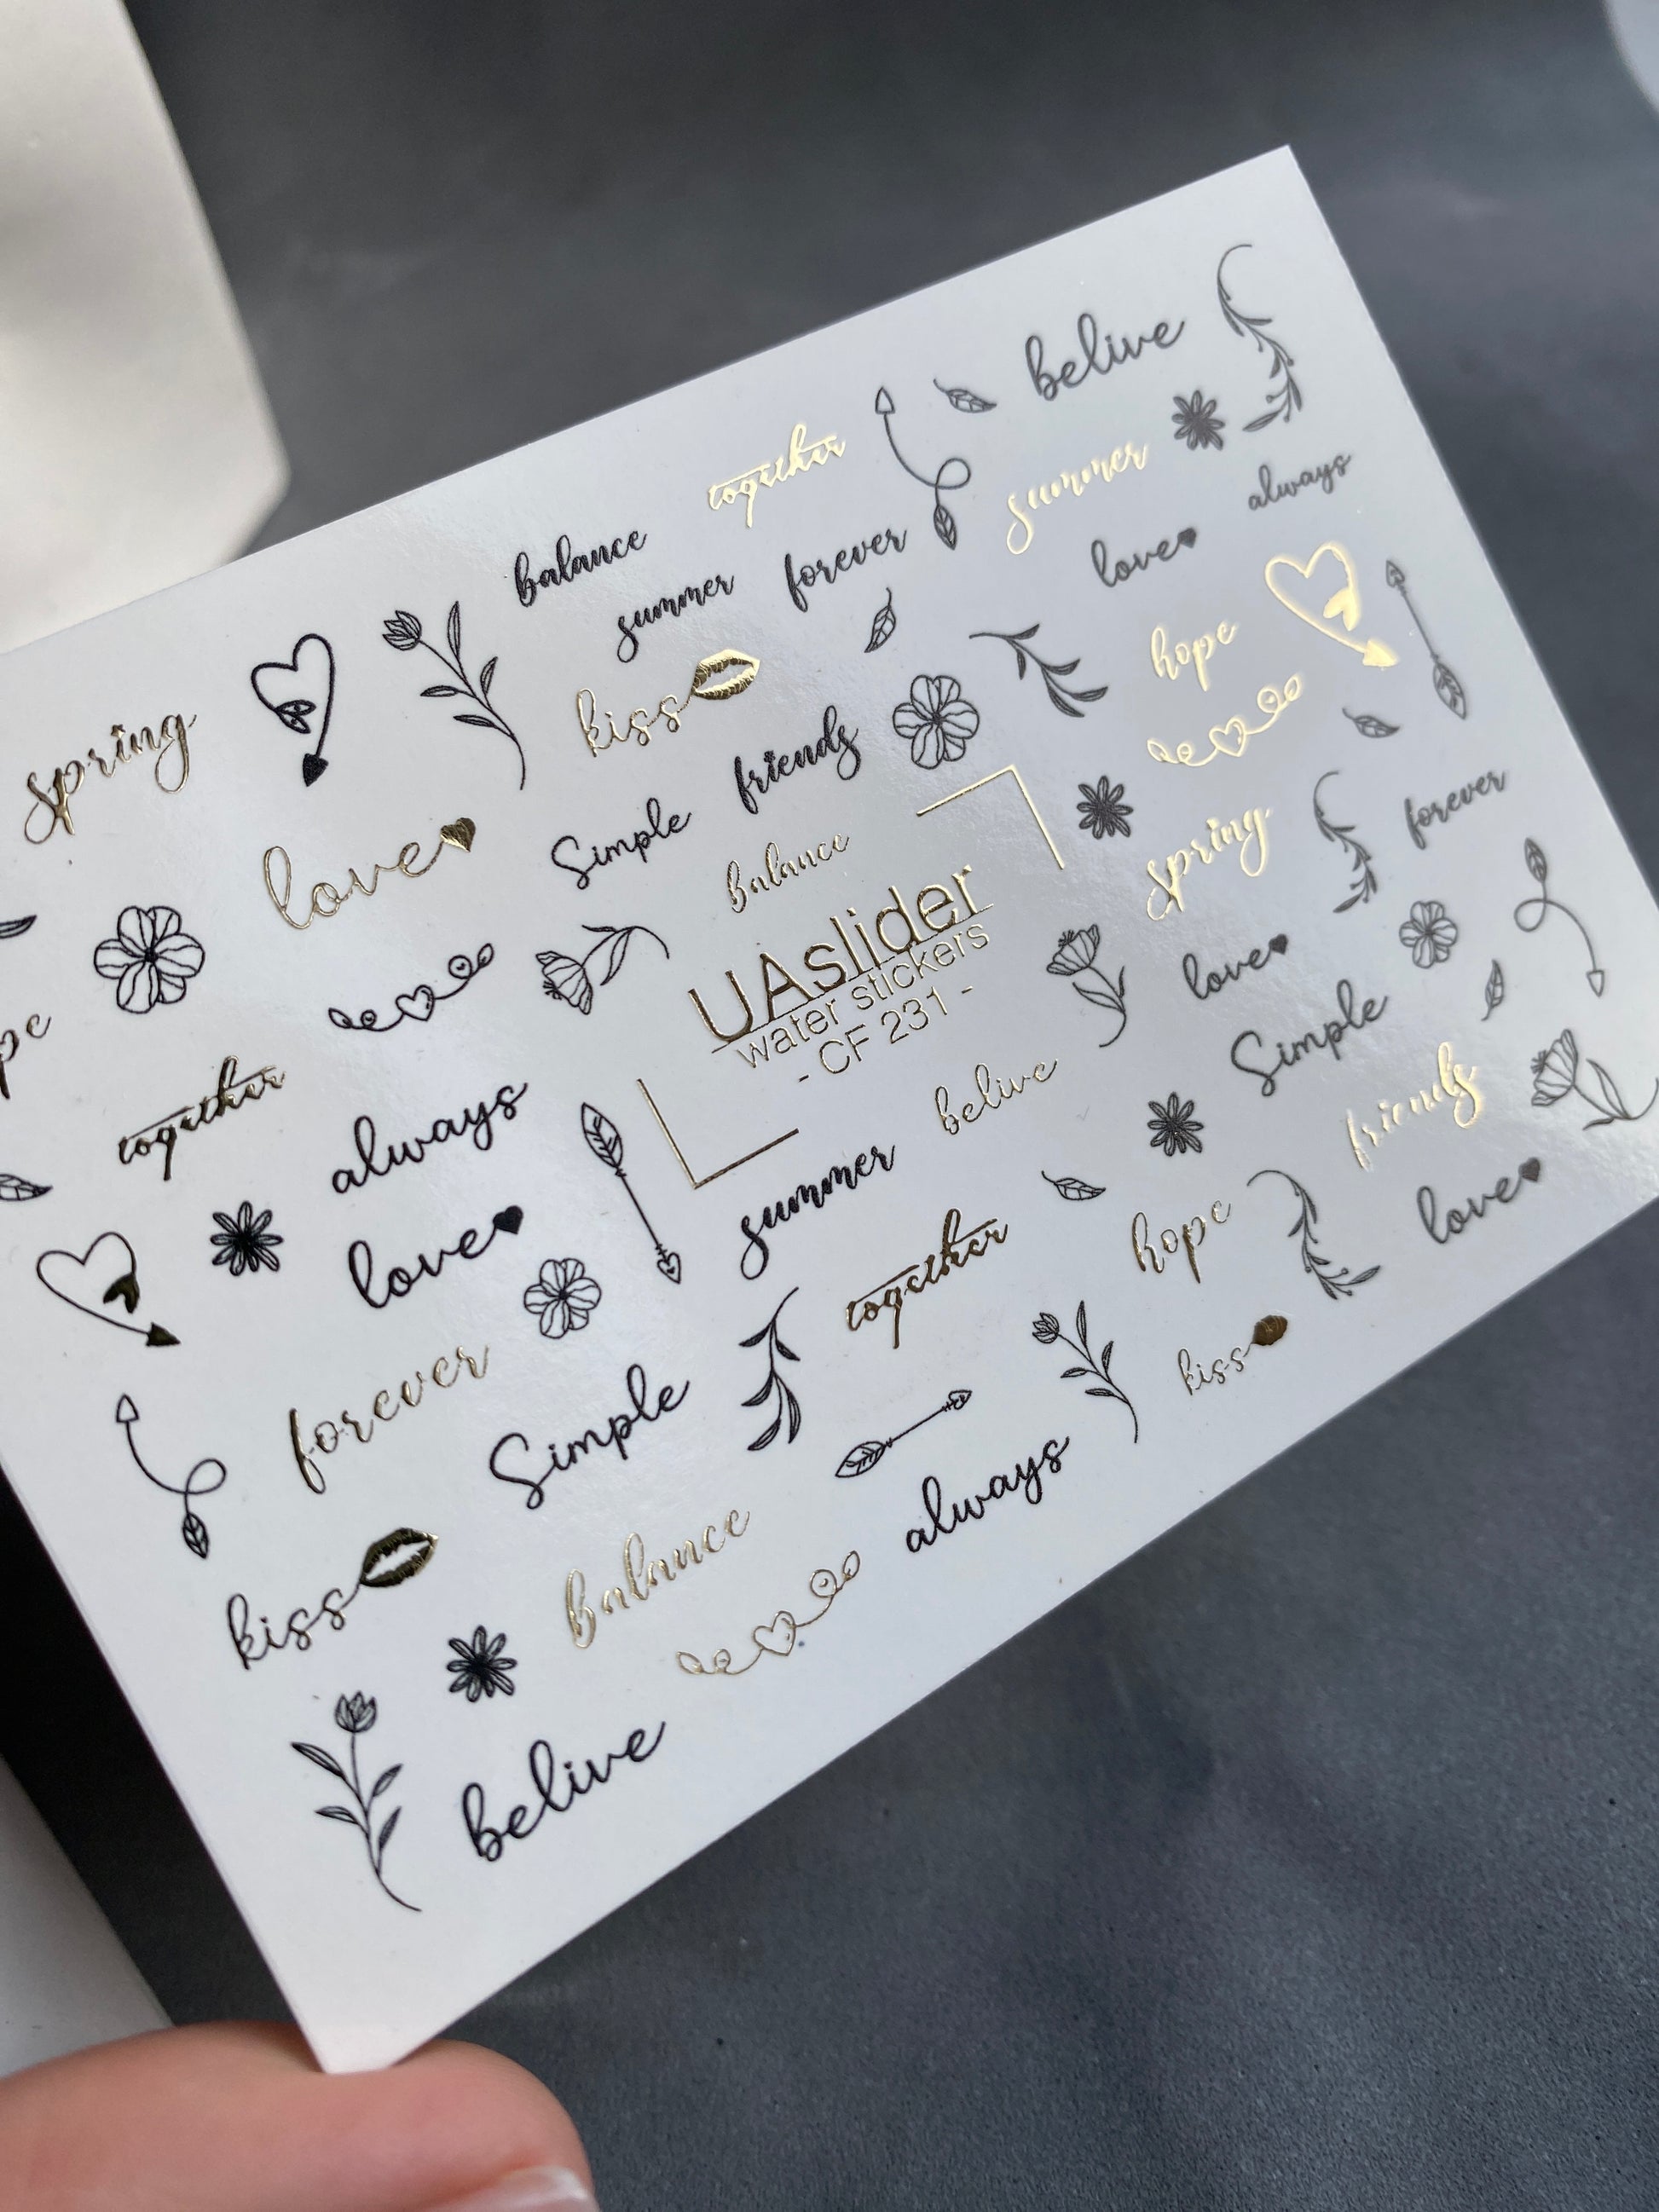 belive
together
summer
always
balance
forever
love
summer
hope
kiss
spring
friends
forever
spring
love
Simple
balance
love
UAslider
water stickers
- CF 231 -
Simple
friends
together
always
belive
love
summer
hope
love
together
kiss
forever
Simple
always
kiss
balance
belive